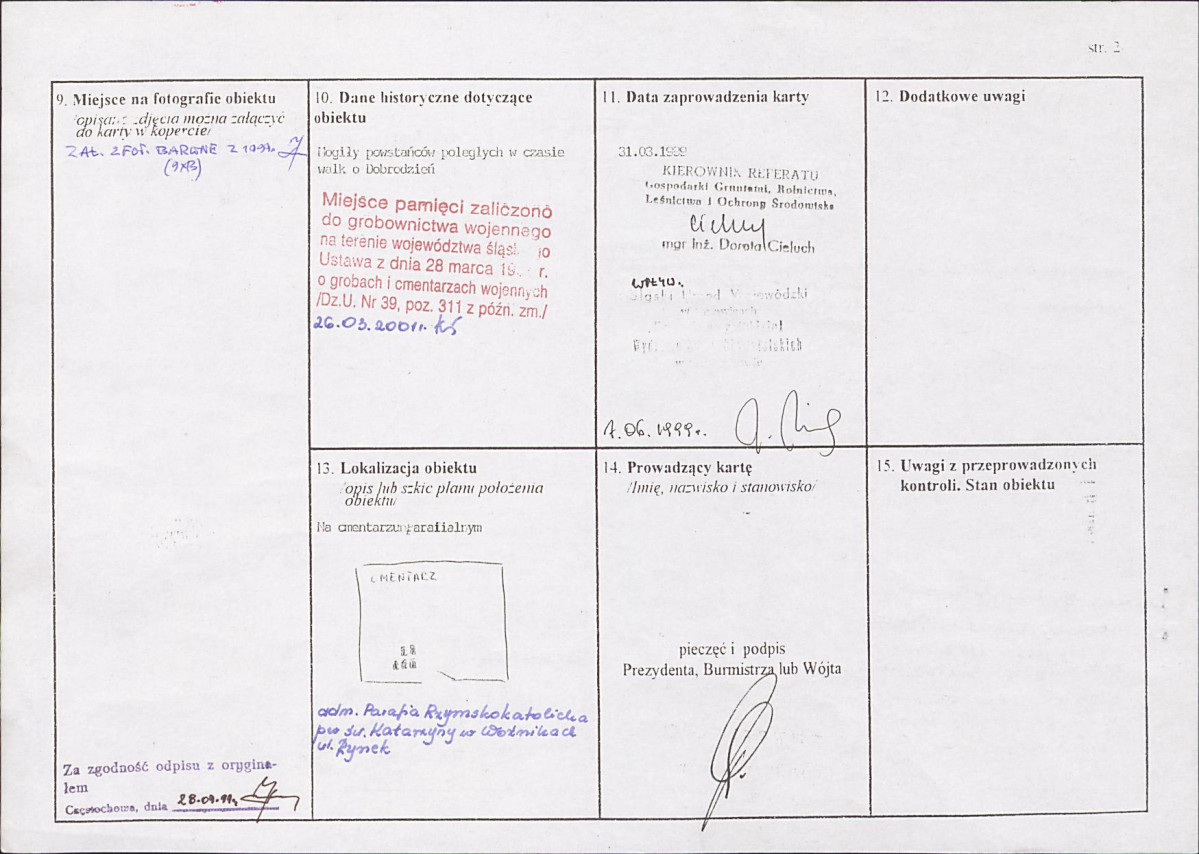 str. 2
9. Miejsce na fotografie obiektu
/opisane zdjęcia można załączyć
do karty w kopercie/
ZAŁ. 2 FOT. BARWNE Z 1997r.
(9x13)
Za zgodność odpisu z orygina-
łem
Częstochowa, dnia 28.09.99r.
10. Dane historyczne dotyczące
obiektu
Mogiły powstańców poległych w czasie
walk o Dobrodzień
Miejsce pamięci zaliczono
do grobownictwa wojennego
na terenie województwa śląs go
Ustawa z dnia 28 marca 19 r.
o grobach i cmentarzach wojennych
/Dz.U. Nr 39, poz. 311 z późn. zm./
26.03.2001r. KŚ
11. Data zaprowadzenia karty
31.03.1999
KIEROWNIK REFERATU
Gospodarki Gruntami, Rolnictwa,
Leśnictwa i Ochrony Środowiska
mgr inż. Dorota Cieluch
WPŁYW.
Śląski Urząd Wojewódzki
7.06.1999r.
12. Dodatkowe uwagi
13. Lokalizacja obiektu
/opis lub szkic planu położenia
obiektu/
Na cmentarzu parafialnym
CMENTARZ
adm. Parafia Rzymskokatolicka
pw św. Katarzyny w Woźnikach
ul. Rynek
14. Prowadzący kartę
/Imię, nazwisko i stanowisko/
pieczęć i podpis
Prezydenta, Burmistrza lub Wójta
15. Uwagi z przeprowadzonych
kontroli. Stan obiektu